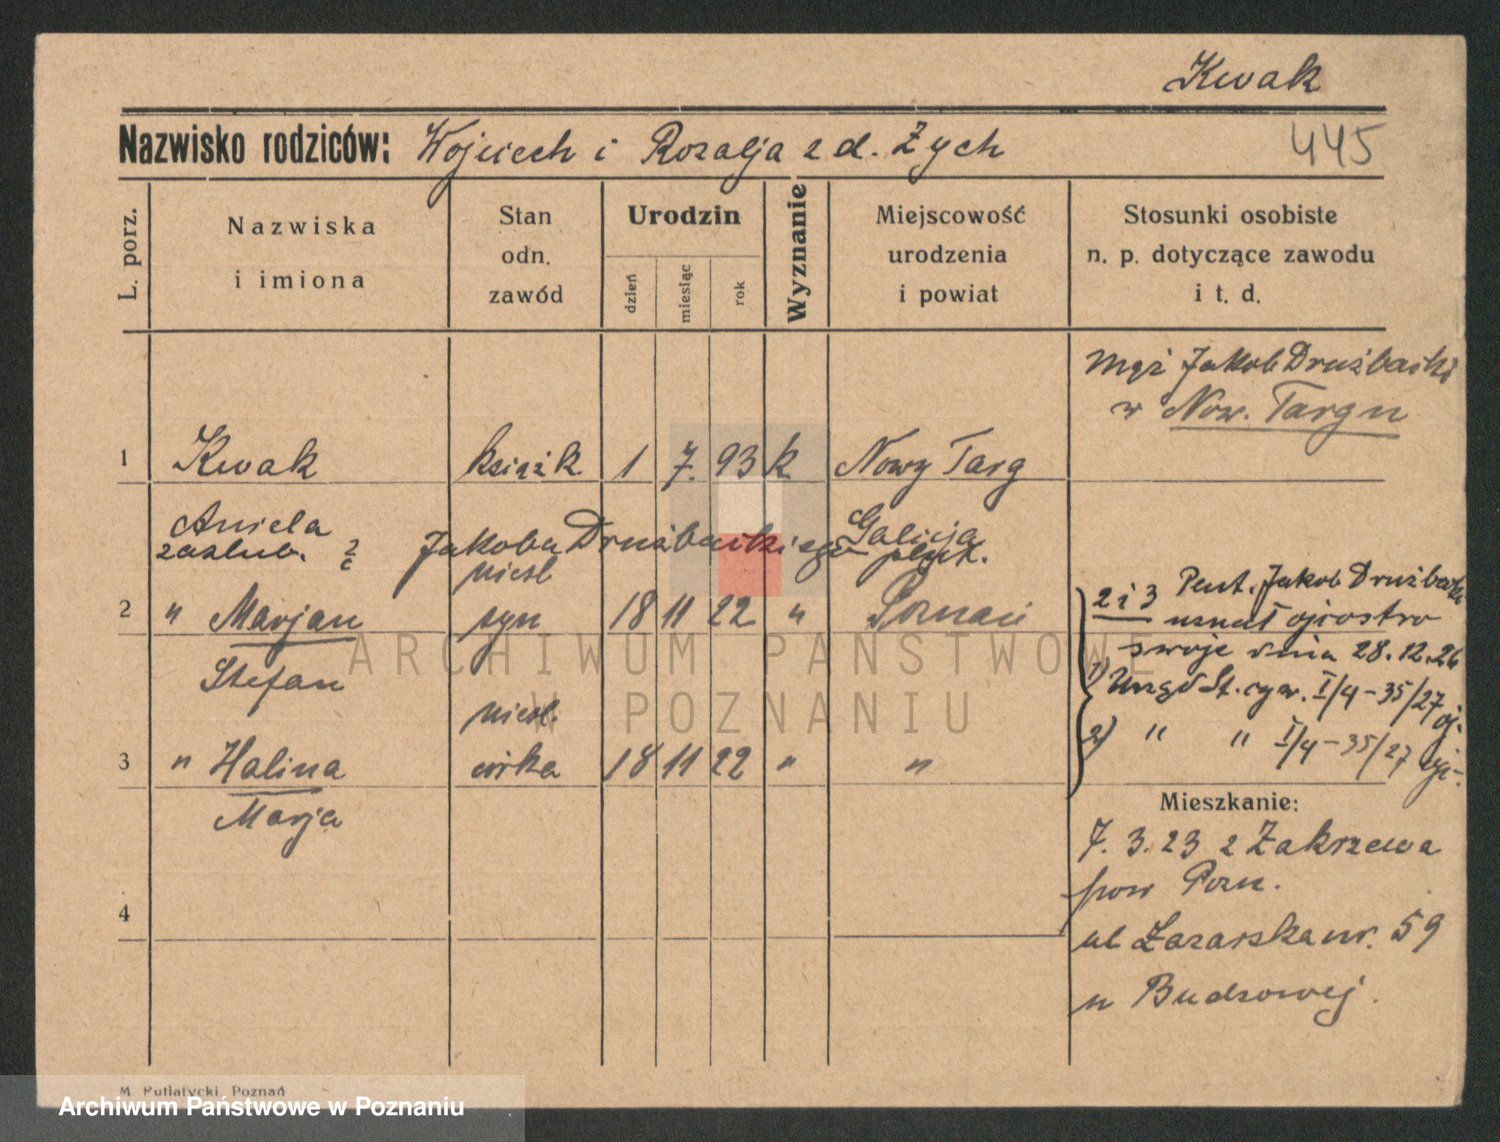 Kwak
Nazwisko rodziców: Wojciech i Rozalja z d. Żych
445
L. porz.
Nazwiska
i imiona
Stan
odn.
zawód
Urodzin
dzień
miesiąc
rok
Wyznanie
Miejscowość
urodzenia
i powiat
Stosunki osobiste
n. p. dotyczące zawodu
i t. d.
mąż Jakob Drużbacki
w Now. Targu
1 Kwak książk 1 7. 93 k Nowy Targ
Aniela Galicja
zaślub. z Jakoba Drużbackiego
nieśl
2 " Marjan syn 18 11 22 " Poznań
Stefan
2 i 3 Jakob Drużbacki
uznał ojcostwo
swoje dnia 28.12.26
1) Urząd St. cyw. I/4-35/27
nieśl.
3 " Halina córka 18 11 22 " "
2) " " I/4-35/27
Marja
Mieszkanie:
7. 3. 23 z Zakrzewa
pow Pozn.
ul Łazarska nr. 59
u Budzowej.
4
M. Putiatycki, Poznań
ARCHIWUM PAŃSTWOWE
W POZNANIU
Archiwum Państwowe w Poznaniu